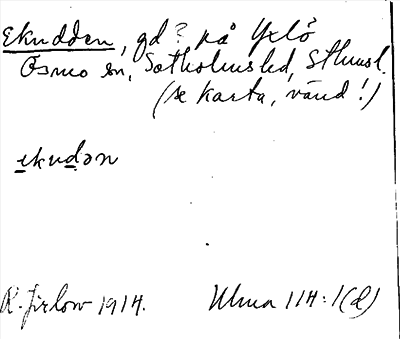 Ekudden, gd? på Yxlö
Ösmo sn, Sotholms hd, Sthmsl.
(se karta, vänd!)
ekudən
R. Jirlow 1914. Ulma 114:1(d)